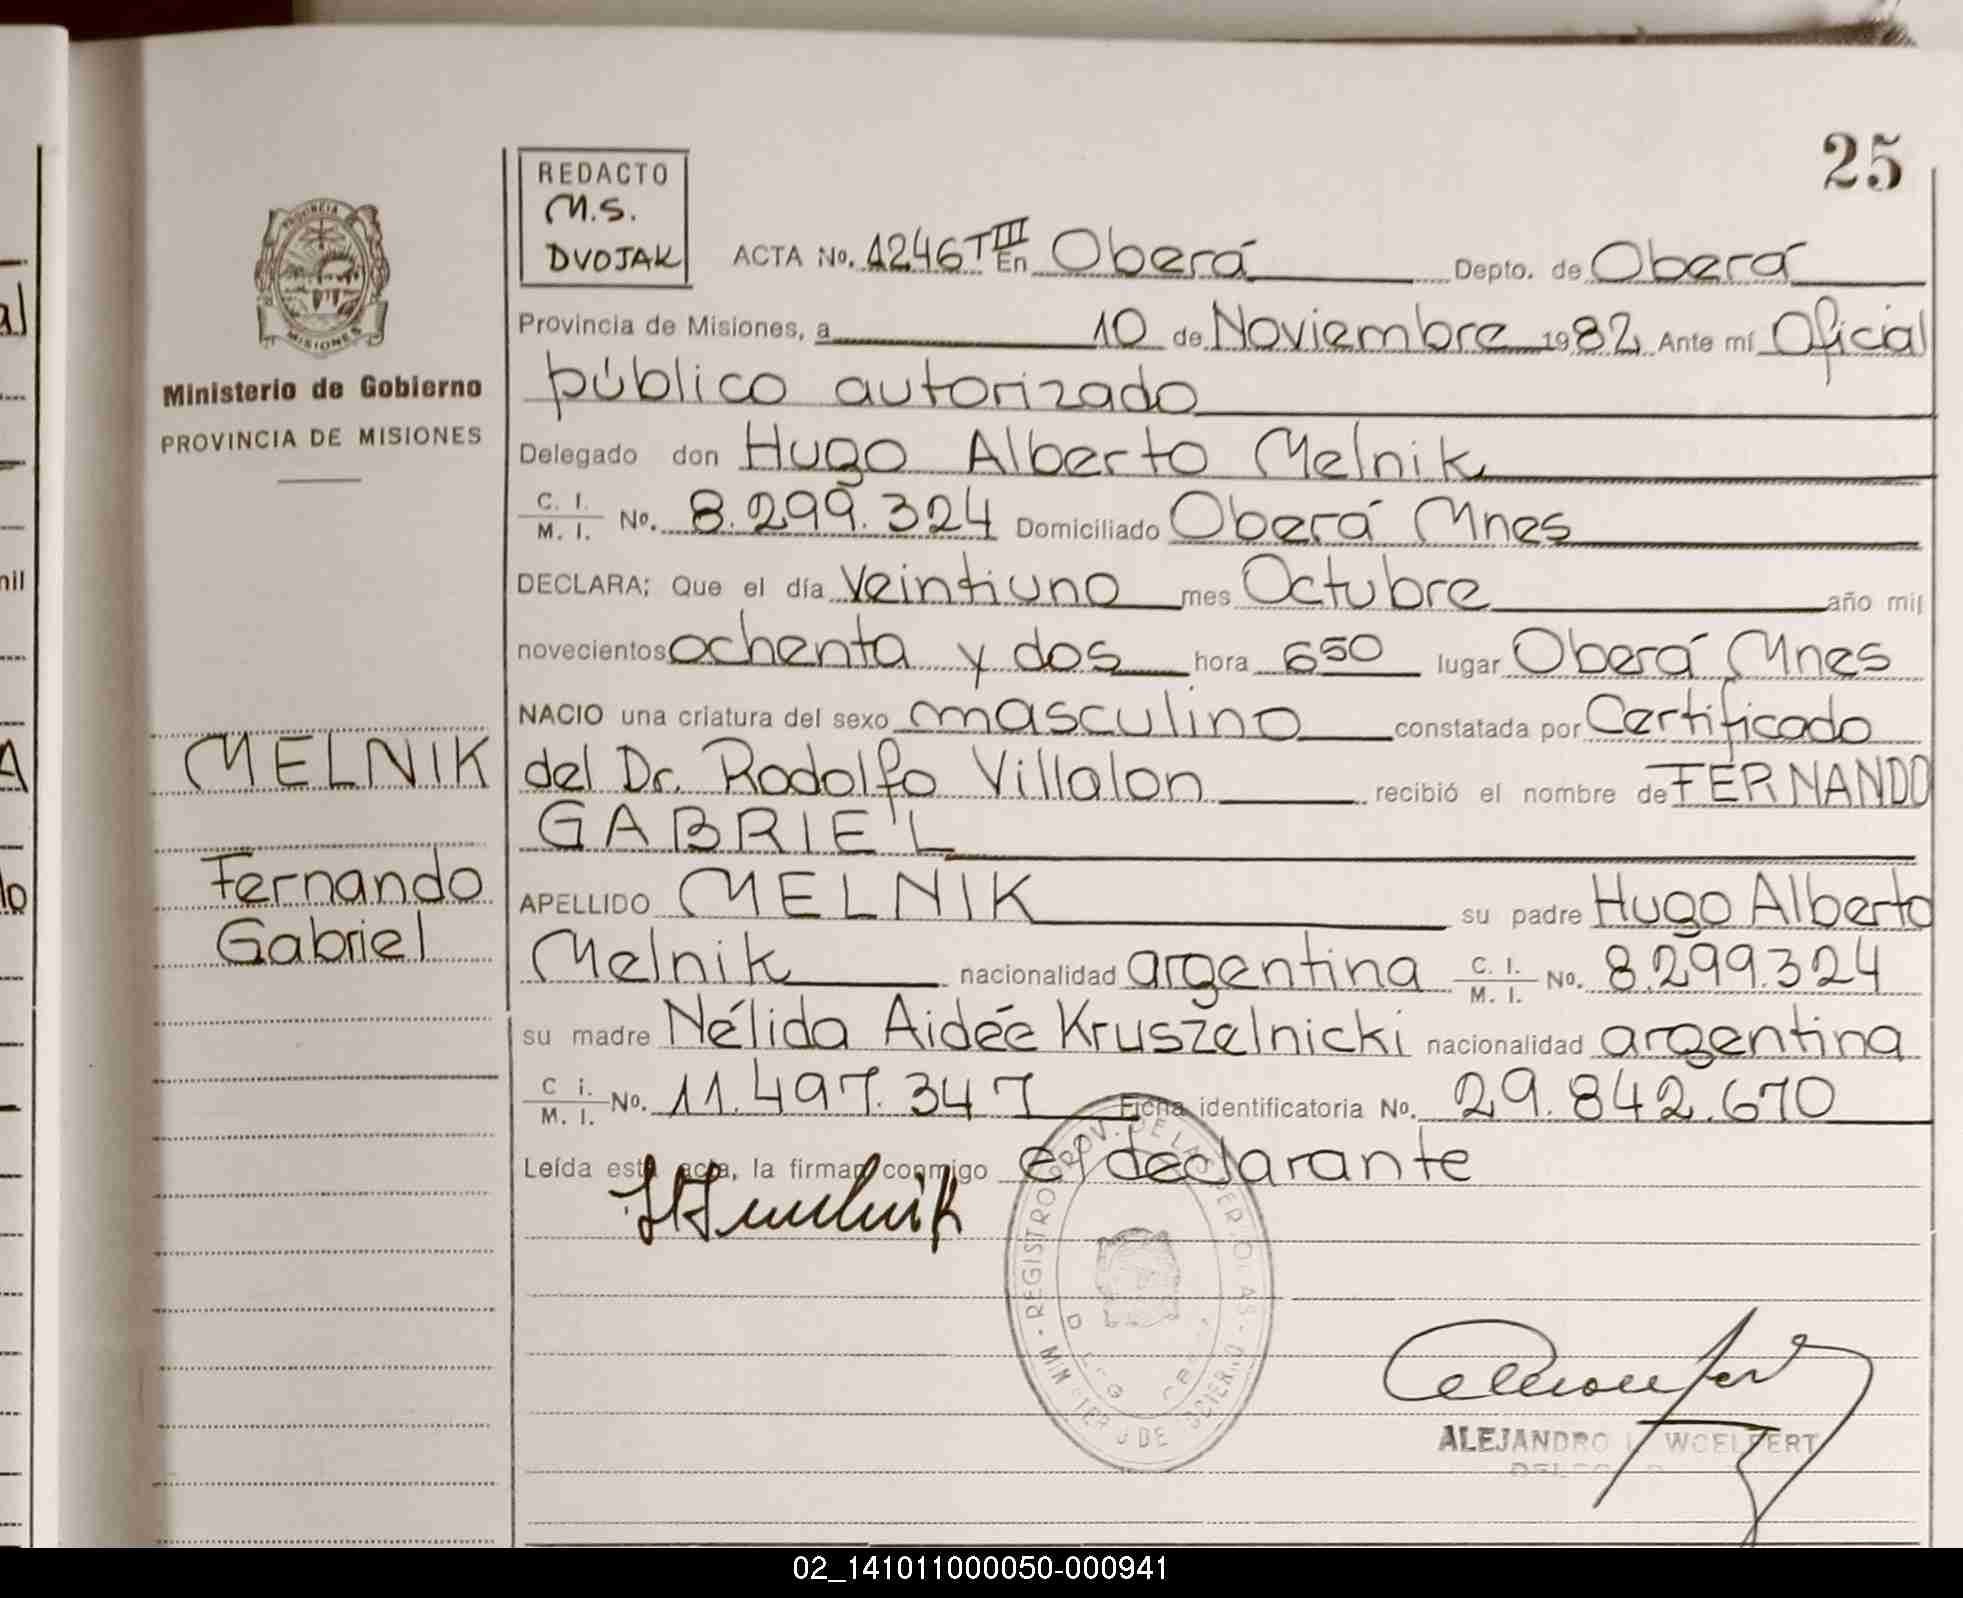 25
REDACTO
M.S.
DVOJAK
ACTA No. 1246 T III En Oberá Depto. de Oberá
Provincia de Misiones, a 10 de Noviembre 1982 Ante mí Oficial
público autorizado
Delegado don Hugo Alberto Melnik
C. I. / M. I. No. 8.299.324 Domiciliado Oberá Mnes
DECLARA; Que el día veintiuno mes Octubre año mil
novecientos ochenta y dos hora 6⁵⁰ lugar Oberá Mnes
NACIO una criatura del sexo masculino constatada por Certificado
del Dr. Rodolfo Villalon recibió el nombre de FERNANDO
GABRIEL
APELLIDO MELNIK su padre Hugo Alberto
Melnik nacionalidad argentina C. I. / M. I. No. 8.299.324
su madre Nélida Aidée Kruszelnicki nacionalidad argentina
C i. / M. I. No. 11.497.347 Ficha identificatoria No. 29.842.670
Leída esta acta, la firman conmigo el declarante
ALEJANDRO WOELFERT
PROVINCIA DE
MISIONES
Ministerio de Gobierno
PROVINCIA DE MISIONES
MELNIK
Fernando
Gabriel
al
nil
A
do
02_141011000050-000941